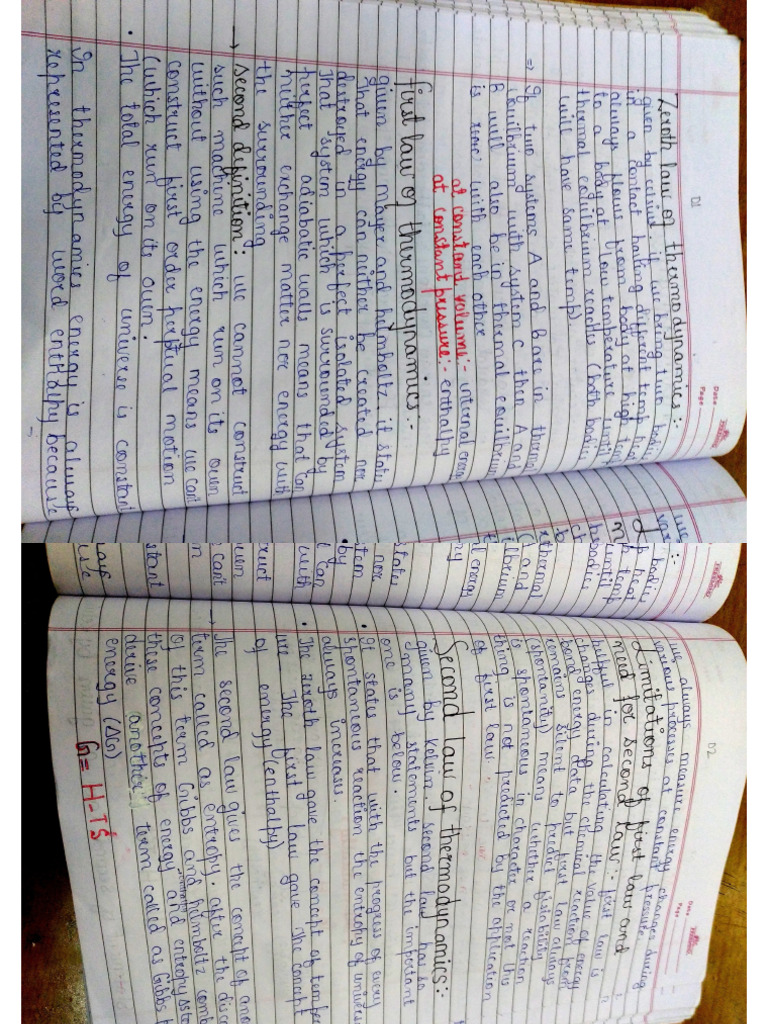 01
Date
Page
Zeroth law of thermodynamics:-
given by celsius. if we bring two bodies
in a contact having different temp heat
always flows from body at high temp
to a body at low temperature until
thermal equilibrium reaches (both bodies
will have same temp)
⇒ If two systems A and B are in thermal
equilibrium with system C then A and
B will also be in thermal equilibrium
is with each other
at constant volume:- internal energy
at constant pressure:- enthalpy
first law of thermodynamics:-
given by mayer and helmholtz. it states
that energy can neither be created nor
destroyed in a perfect isolated system
That system which is surrounded by
perfect adiabatic walls means that can
neither exchange matter nor energy with
the surrounding
→ second definition: we cannot construct
such machine which run on its own
without using the energy means we can't
construct first order perpetual motion
(which run on its own.
• The total energy of universe is constant
In thermodynamics energy is always
represented by word enthalpy because
02
Date
Page
we always measure energy changes during
various processes at constant pressure
Limitations of first law and
need for second law:- first law is
helpful in calculating the value of energy
changes during the chemical reaction from
bond energy data but first law always
remains silent to predict fistability
(spontanity) means whether a reaction
is spontaneous in character or not this
thing is not predicted by the application
of first law.
Second law of thermodynamics:-
given by kelvin second law has so
many statements but the important
one is below.
• It states that with the progress of every
spontaneous reaction the entropy of universe
always increases.
• The zeroth law gave the concept of
The first law gave the concept
of energy (enthalpy)
→ The second law gives the concept of
term called as entropy. after the
of this term Gibbs and helmholtz
these concepts of energy and entropy
derive another term called as Gibbs
energy (ΔG)
G = H - TS